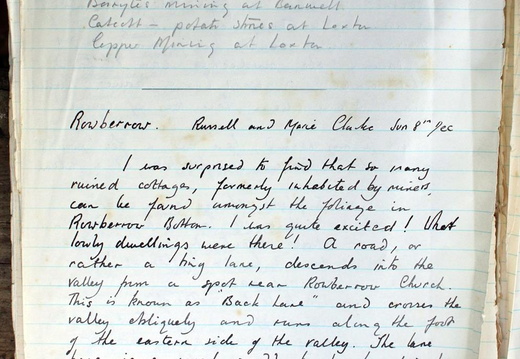 Barytes mining at Banwell
Catcott - potato stones at Loxton
Copper Mining at Loxton
Rowberrow. Russell and Marie Clarke Sun 8th Dec
I was surprised to find that so many
ruined cottages, formerly inhabited by miners,
can be found amongst the foliage in
Rowberrow Bottom. I was quite excited! What
lowly dwellings were there! A road, or
rather a tiny lane, descends into the
valley from a spot near Rowberrow Church.
This is known as "Back Lane" and crosses the
valley obliquely and runs along the foot
of the eastern side of the valley. The lane